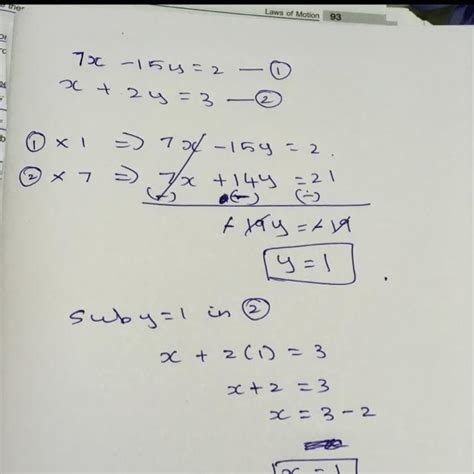 Laws of Motion 93
7x - 15y = 2 — ①
x + 2y = 3 — ②
① × 1 ⇒ 7x - 15y = 2.
② × 7 ⇒ 7x + 14y = 21
(-) (-) (-)
y = 1
sub y = 1 in ②
x + 2(1) = 3
x + 2 = 3
x = 3 - 2
x = 1